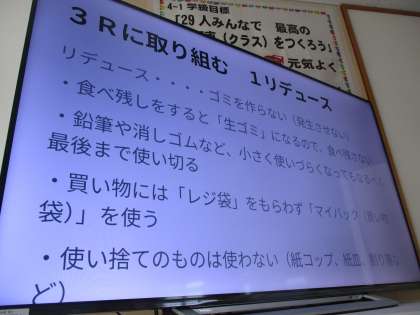 4-1 学級目標
「29人みんなで 最高の
（クラス）をつくろう」
元気よく
３Ｒに取り組む １リデュース
リデュース・・・・ゴミを作らない（発生させない）
・食べ残しをすると「生ゴミ」になるので、食べ残さない
・鉛筆や消しゴムなど、小さく使いづらくなってもなるべく
最後まで使い切る
・買い物には「レジ袋」をもらわず「マイバック（買い物
袋）」を使う
・使い捨てのものは使わない（紙コップ、紙皿、割り箸な
ど）